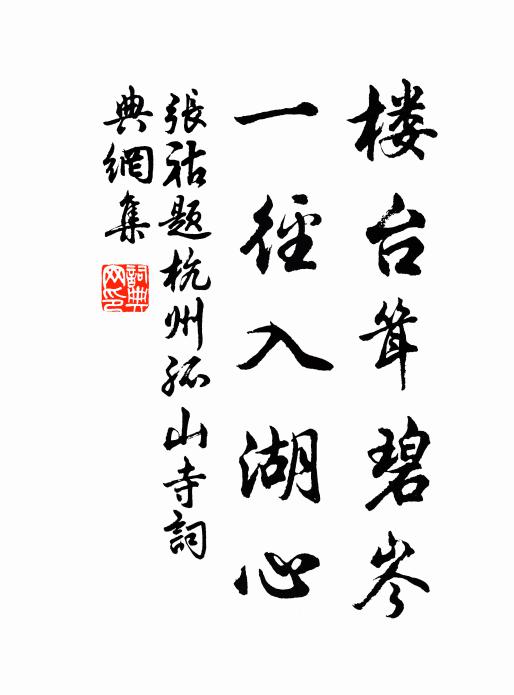 楼台耸碧岑
一径入湖心
張祜题杭州孤山寺詞
典網集
詞典網印